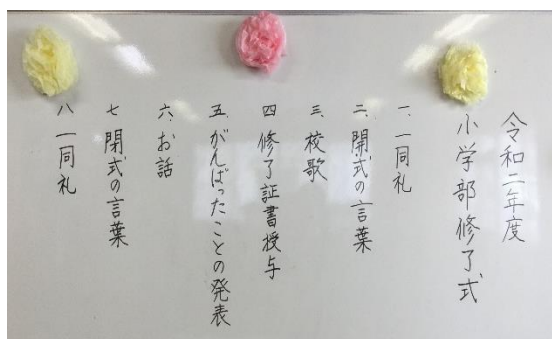 令和二年度
小学部修了式
一、一同礼
二、開式の言葉
三、校歌
四、修了証書授与
五、がんばったことの発表
六、お話
七、閉式の言葉
八、一同礼